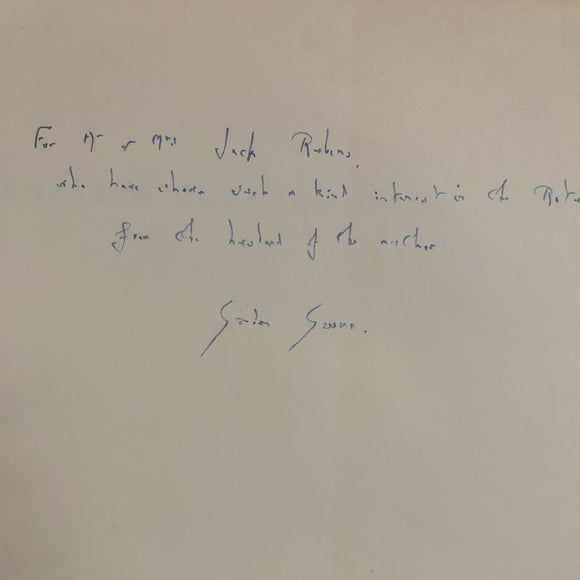 For Mr & Mrs Jack Rubens,
who have shown such a kind interest in the
from the husband of the author
Gordon